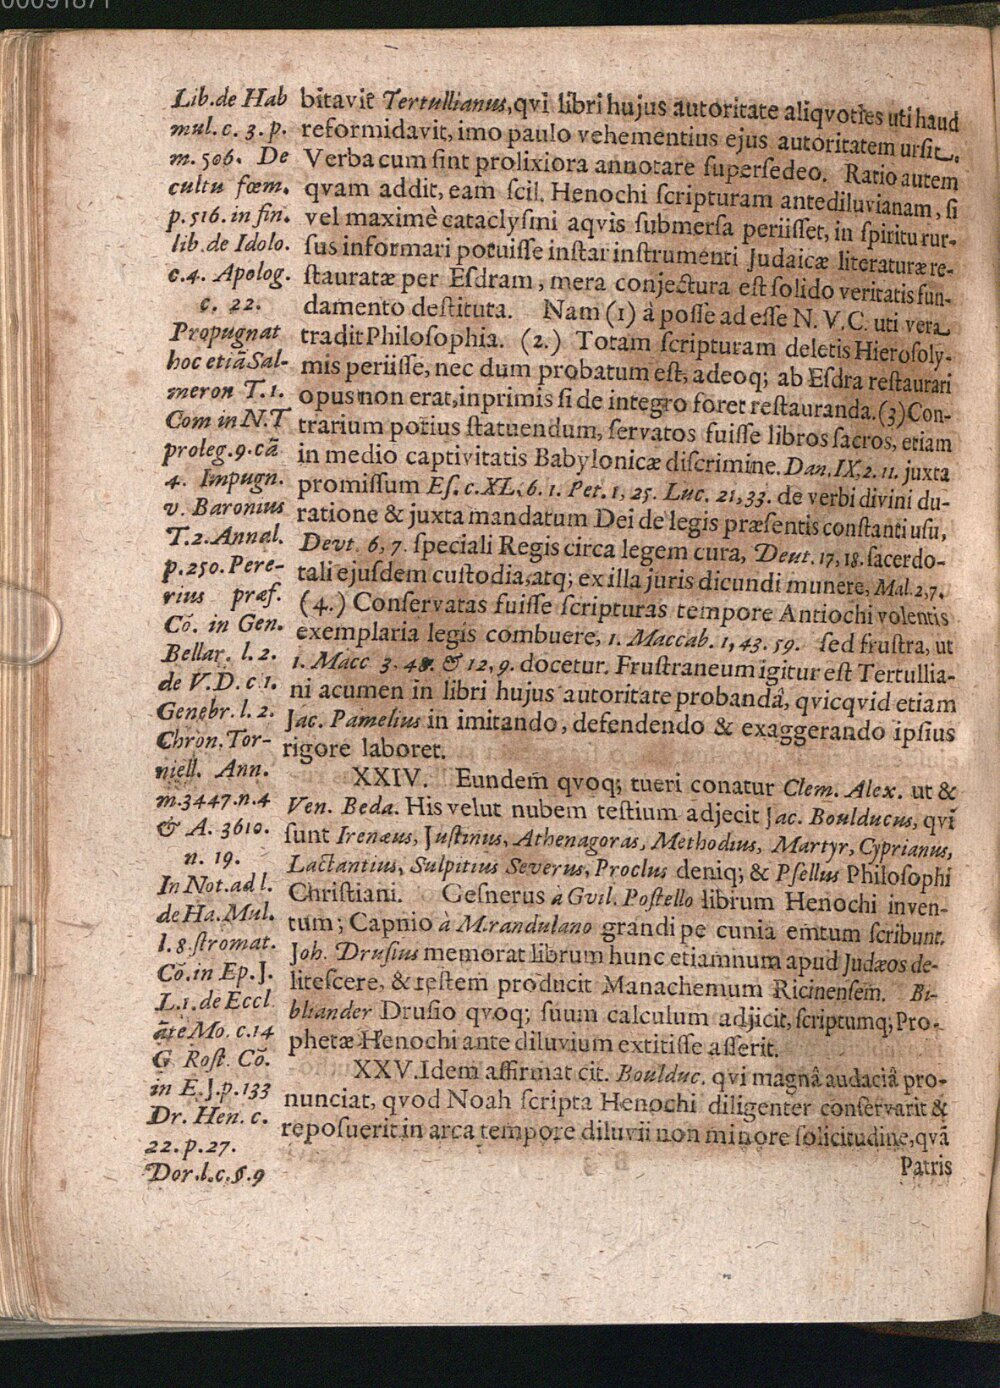 00091871
Lib. de Hab
mul. c. 3. p.
m. 506. De
cultu fœm.
p. 516. in fin.
lib. de Idolo.
c. 4. Apolog.
c. 22.
Propugnat
hoc etiã Sal-
meron T. 1.
Com in N. T
proleg. 9. cã
4. Impugn.
v. Baronius
T. 2. Annal.
p. 250. Pere-
rius præf.
Cõ. in Gen.
Bellar. l. 2.
de V. D. c 1.
Genebr. l. 2.
Chron. Tor-
niell. Ann.
m. 3447. n. 4
& A. 3610.
n. 19.
In Not. ad l.
de Ha. Mul.
l. 8. ſtromat.
Cõ. in Ep. J.
L. 1. de Eccl
ãte Mo. c. 14
G Roſt. Cõ.
in E. J. p. 133
Dr. Hen. c.
22. p. 27.
Dor. l. c. §. 9
bitavit Tertullianus, qvi libri hujus autoritate aliqvoties uti haud
reformidavit, imo paulo vehementius ejus autoritatem urſit.
Verba cum ſint prolixiora annotare ſuperſedeo. Ratio autem
qvam addit, eam ſcil. Henochi ſcripturam antediluvianam, ſi
vel maximè cataclyſmi aqvis ſubmerſa periiſſet, in ſpiritu rur-
ſus informari potuiſſe inſtar inſtrumenti Judaicæ literaturæ re-
ſtauratæ per Eſdram, mera conjectura eſt ſolido veritatis fun-
damento deſtituta. Nam (1) à poſſe ad eſſe N. V. C. uti vera
tradit Philoſophia. (2.) Totam ſcripturam deletis Hieroſoly-
mis periiſſe, nec dum probatum eſt, adeoq; ab Eſdra reſtaurari
opus non erat, inprimis ſi de integro foret reſtauranda. (3) Con-
trarium potius ſtatuendum, ſervatos fuiſſe libros ſacros, etiam
in medio captivitatis Babylonicæ diſcrimine. Dan. IX, 2. 11. juxta
promiſſum Eſ. c. XL, 6. 1. Pet. 1, 25. Luc. 21, 33. de verbi divini du-
ratione & juxta mandatum Dei de legis præſentis conſtanti uſu,
Devt. 6, 7. ſpeciali Regis circa legem cura, Deut. 17, 18. ſacerdo-
tali ejuſdem cuſtodia, atq; ex illa juris dicundi munere, Mal. 2, 7.
(4.) Conſervatas fuiſſe ſcripturas tempore Antiochi volentis
exemplaria legis combuere, 1. Maccab. 1, 43. 59. ſed fruſtra, ut
1. Macc 3. 48. & 12, 9. docetur. Fruſtraneum igitur eſt Tertullia-
ni acumen in libri hujus autoritate probandâ, qvicqvid etiam
Jac. Pamelius in imitando, defendendo & exaggerando ipſius
rigore laboret.
XXIV. Eundem̃ qvoq; tueri conatur Clem. Alex. ut &
Ven. Beda. His velut nubem teſtium adjecit Jac. Boulducus, qvi
ſunt Irenæus, Juſtinus, Athenagoras, Methodius, Martyr, Cyprianus,
Lactantius, Sulpitius Severus, Proclus deniq; & Pſellus Philoſophi
Chriſtiani. Geſnerus à Gvil. Poſtello librum Henochi inven-
tum; Capnio à Mirandulano grandi pe cunia emtum ſcribunt.
Joh. Druſius memorat librum hunc etiamnum apud Judæos de-
liteſcere, & teſtem producit Manachemum Ricinenſem. Bi-
bliander Druſio qvoq; ſuum calculum adjicit, ſcriptumq; Pro-
phetæ Henochi ante diluvium extitiſſe aſſerit.
XXV. Idem affirmat cit. Boulduc. qvi magnâ audaciâ pro-
nunciat, qvod Noah ſcripta Henochi diligenter conſervarit &
repoſuerit in arca tempore diluvii non minore ſolicitudine, qvã
Patris